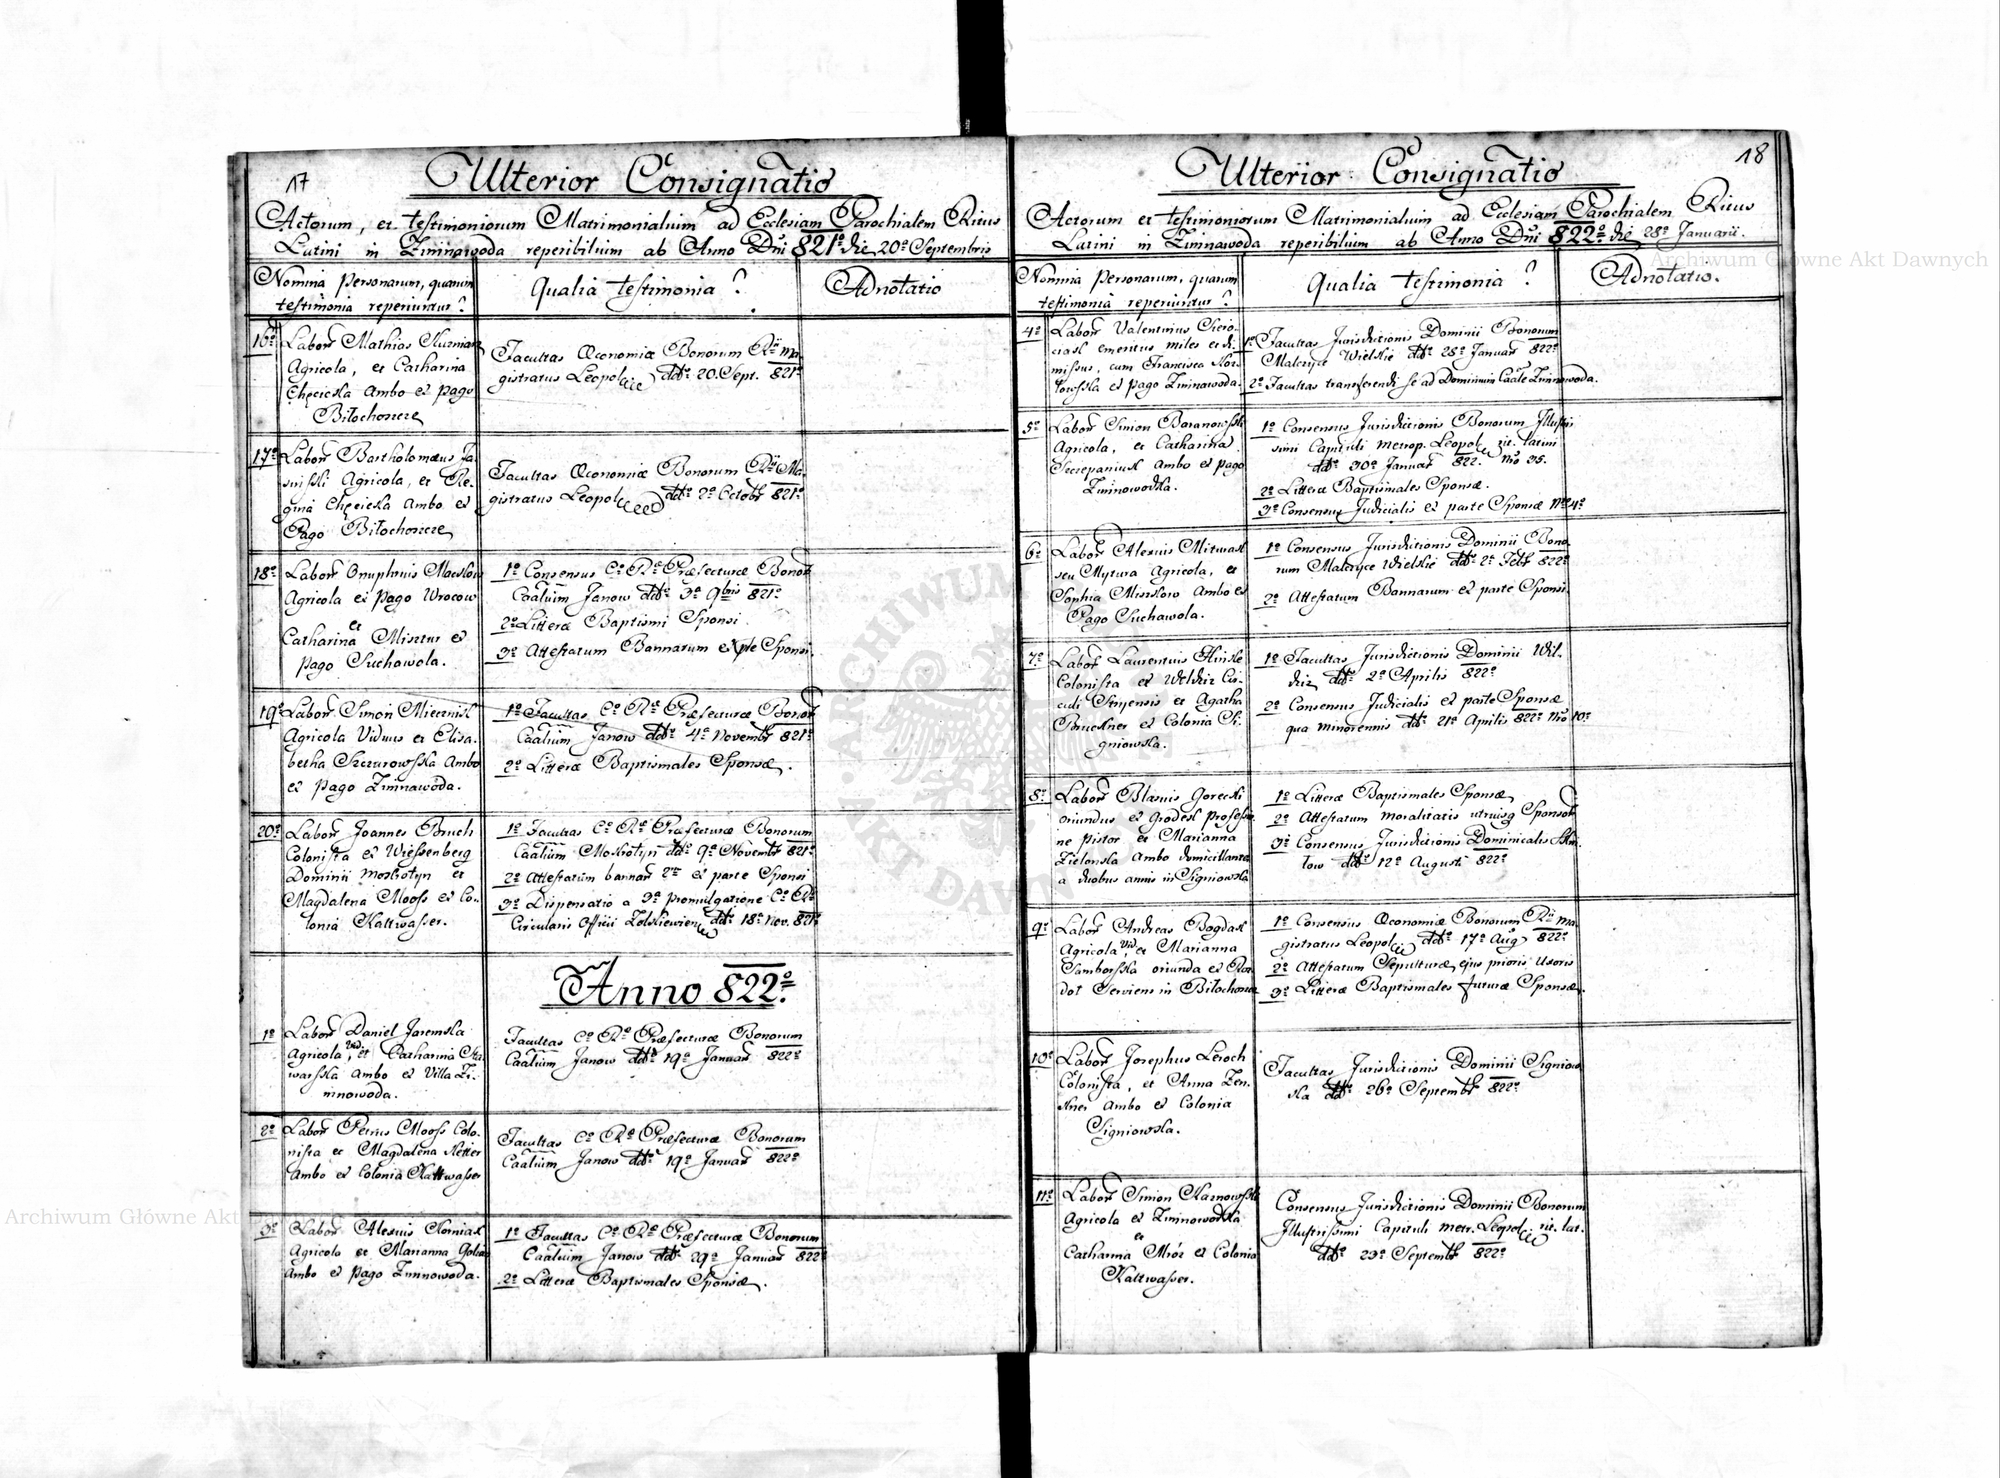 17
Ulterior Consignatio
Actorum, et testimoniorum Matrimonialium ad Ecclesiam Parochialem Ritus
Latini in Zimnawoda reperibilium ab Anno Dni 821º die 20ª Septembris
Nomina Personarum, quarum
testimonia reperiuntur?
Qualia testimonia?
Adnotatio
16º
Labor Mathias
Agricola, et Catharina
Chęcicka Ambo ex pago
Biłochorzcze
Facultas Œconomiæ Bonorum Ma-
gistratus Leopol ddtº 20. Sept. 821º
17º
Labor Bartholomæus Ja-
Agricola, et Re-
gina Chęcicka Ambo ex
Pago Biłochorzcze
Facultas Œconomiæ Bonorum Ma-
gistratus Leopol ddtº 2ª Octobr 821º
18º
Labor Onuphrius
Agricola ex pago Wrocow
et
Catharina Misztur ex
pago Suchowola.
1º Consensus Cº Rº Præfecturæ Bonor
Caalium Janow ddtº 3ª 9bris 821º
2º Litteræ Baptismi Sponsi
3º Attestatum Bannarum ex pte Sponsi
19º
Labor Simon Miecznik
Agricola Viduus et Elisa-
betha Szczurowska Ambo
ex Pago Zimnawoda.
1º Facultas Cº Rº Præfecturæ Bonor
Caalium Janow ddtº 4ª Novembr 821º
2º Litteræ Baptismales Sponsæ.
20º
Labor Joannes Bruch
Colonista ex Wiessenberg
Dominii Mostrotyn et
Magdalena Mooss ex Co-
lonia Kattwasser.
1º Facultas Cº Rº Præfecturæ Bonorum
Caalium ddtº 9ª Novembr 821º
2º Attestatum bannar ex parte Sponsi
3º Dispensatio a 3ª promulgatione Cº Rº
Circularis Officii ddtº 18ª Nov. 821º
Anno 822º
1º
Labor Daniel Jaremska
Agricola Vid. et Catharina
Ambo ex Villa Zi-
mnowoda.
Facultas Cº Rº Præfecturæ Bonorum
Caalium Janow ddtº 19ª Januar 822º
2º
Labor Petrus Mooss Colo-
nista et Magdalena Ketter
Ambo ex Colonia Kattwasser
Facultas Cº Rº Præfecturæ Bonorum
Caalium Janow ddtº 19ª Januar 822º
3º
Labor Alexius Korniak
Agricola et Marianna
Ambo ex Pago Zimnowoda.
1º Facultas Cº Rº Præfecturæ Bonorum
Caalium Janow ddtº 29ª Januar 822
2º Litteræ Baptismales Sponsæ.
18
Ulterior Consignatio
Actorum et testimoniorum Matrimonialium ad Ecclesiam Parochialem Ritus
Latini in Zimnawoda reperibilium ab Anno Dni 822º die 28ª Januarii.
Nomina Personarum, quarum
testimonia reperiuntur?
Qualia testimonia?
Adnotatio.
4º
Labor Valentinus Siero-
ciak emeritus miles et di-
missus, cum Francisca
ex pago Zimnawoda.
1º Facultas Jurisdictionis Dominii Bonorum
Malczyce Wielkie ddtº 28ª Januar 822º
2º Facultas transferendi se ad Dominium Caale Zimnowoda.
5º
Labor Simon Baranowski
Agricola, et Catharina
Szczepaniuk Ambo ex pago
Zimnowodka.
1º Consensus Jurisdictionis Bonorum Illustris
simi Capituli Metrop. Leopol rit. latini
ddtº 30ª Januar 822. Nro 35.
2º Litteræ Baptismales Sponsæ.
3º Consensus Judicialis ex parte Sponsæ Nro 4º
6º
Labor Alexius Miturak
seu Mytura Agricola, et
Sophia Ambo ex
Pago Suchawola.
1º Consensus Jurisdictionis Dominii Bono-
rum Malczyce Wielkie ddtº 2ª Febr 822º
2º Attestatum Bannarum ex parte Sponsi
7º
Labor Laurentius Hinkle
Colonista ex Weldzirz Cir-
culi Stryensis et Agatha
Bruckner ex Colonia Si-
gniowska.
1º Facultas Jurisdictionis Dominii Wel-
dzirz ddtº 2ª Aprilis 822º
2º Consensus Judicialis ex parte Sponsæ
qua minorennis ddtº 21ª Aprilis 822º Nro 10º
8º
Labor Blasius Gorecki
oriundus ex Grodek professio-
ne pistor et Marianna
Zielonska Ambo domicillantes
a duobus annis in Signiowka
1º Litteræ Baptismales Sponsæ
2º Attestatum moralitatis utriusq Sponsor
3º Consensus Jurisdictionis Dominicalis
ddtº 12ª Augusti 822º
9º
Labor Andreas Bogdak
Agricola Vid. et Marianna
Samborska oriunda ex
Serviens in Biłochorzcze
1º Consensus Œconomiæ Bonorum Ma-
gistratus Leopol ddtº 17ª Aug 822º
2º Attestatum Sepulturæ ejus prioris Uxoris
3º Litteræ Baptismales futuræ Sponsæ.
10º
Labor Josephus Leroch
Colonista, et Anna Zen-
kner Ambo ex Colonia
Signiowska.
Facultas Jurisdictionis Dominii Signiow-
ka ddtº 26ª Septembr 822º
11º
Labor Simon Karnowski
Agricola ex Zimnowodka
et
Catharina Mróz ex Colonia
Kaltwasser.
Consensus Jurisdictionis Dominii Bonorum
Illustrissimi Capituli metr. Leopol rit. lat.
ddtº 23ª Septembr 822º
Archiwum Główne Akt Dawnych
Archiwum Główne Akt
ARCHIWUM
AKT DAWN